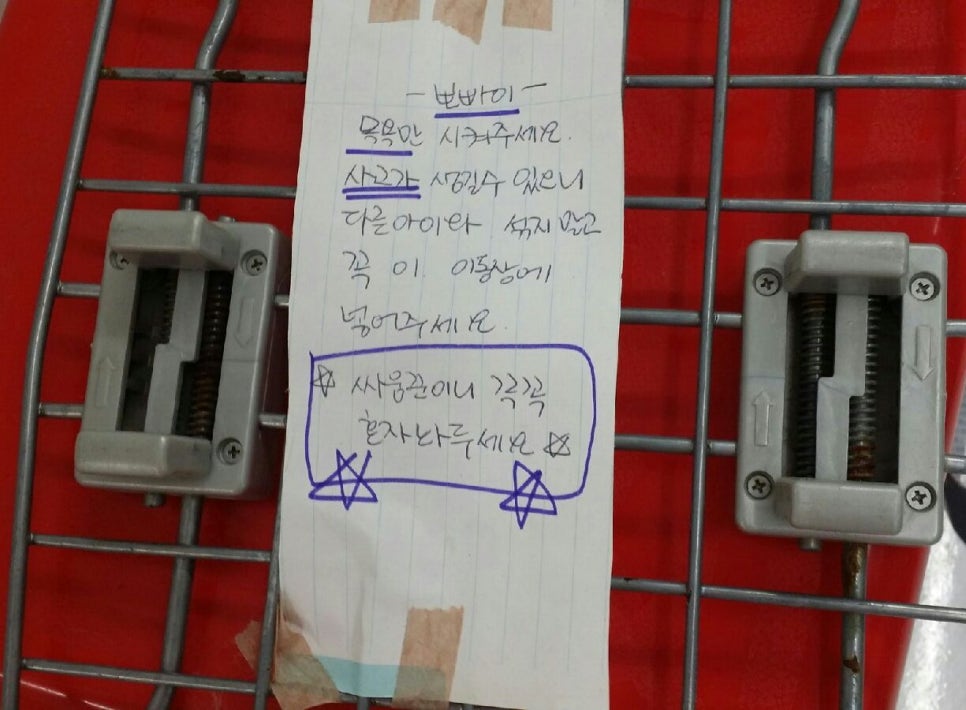 - 뽀빠이 -
목욕만 시켜주세요.
사고가 생길수 있으니
다른아이와 섞지말고
꼭 이 이동장에
넣어주세요.
☆ 싸움꾼이니 꼭꼭
혼자놔두세요 ☆